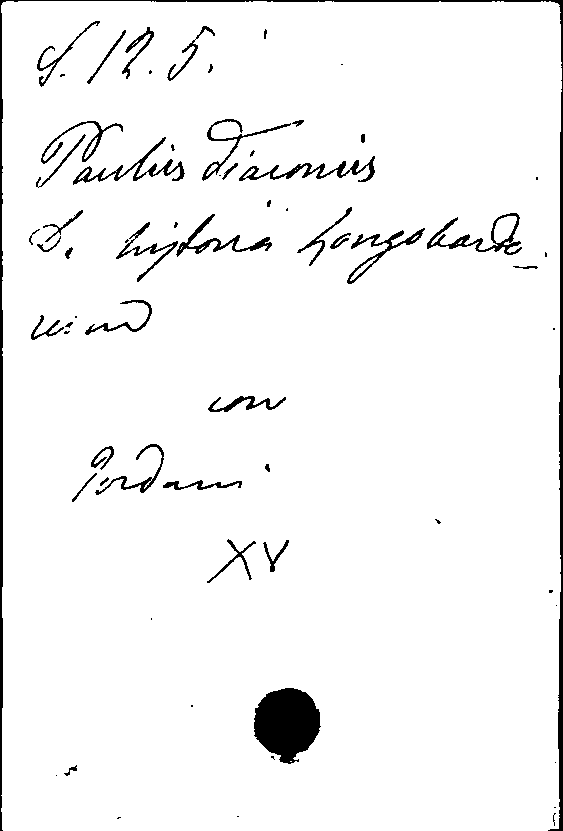 S. 12. 5.
Paulus Diaconus
D. historia Longobardo_
rum
con
Jordani
XV